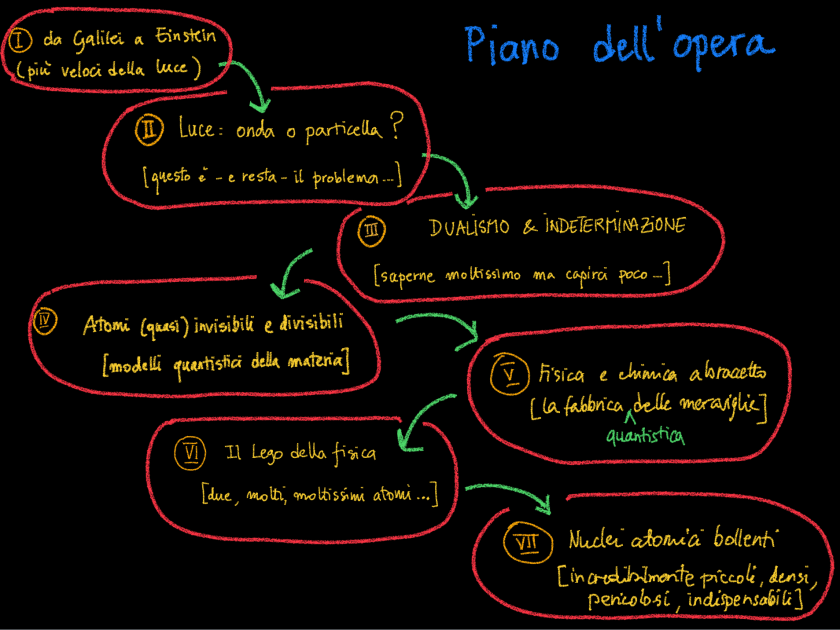 Piano dell'opera
I da Galilei a Einstein
(più veloci della luce)
II Luce: onda o particella?
[questo è - e resta - il problema...]
III DUALISMO & INDETERMINAZIONE
[saperne moltissimo ma capirci poco...]
IV Atomi (quasi) invisibili e divisibili
[modelli quantistici della materia]
V Fisica e chimica a braccetto
[la fabbrica delle meraviglie]
quantistica
VI Il Lego della fisica
[due, molti, moltissimi atomi...]
VII Nuclei atomici bollenti
[incredibilmente piccoli, densi,
pericolosi, indispensabili]